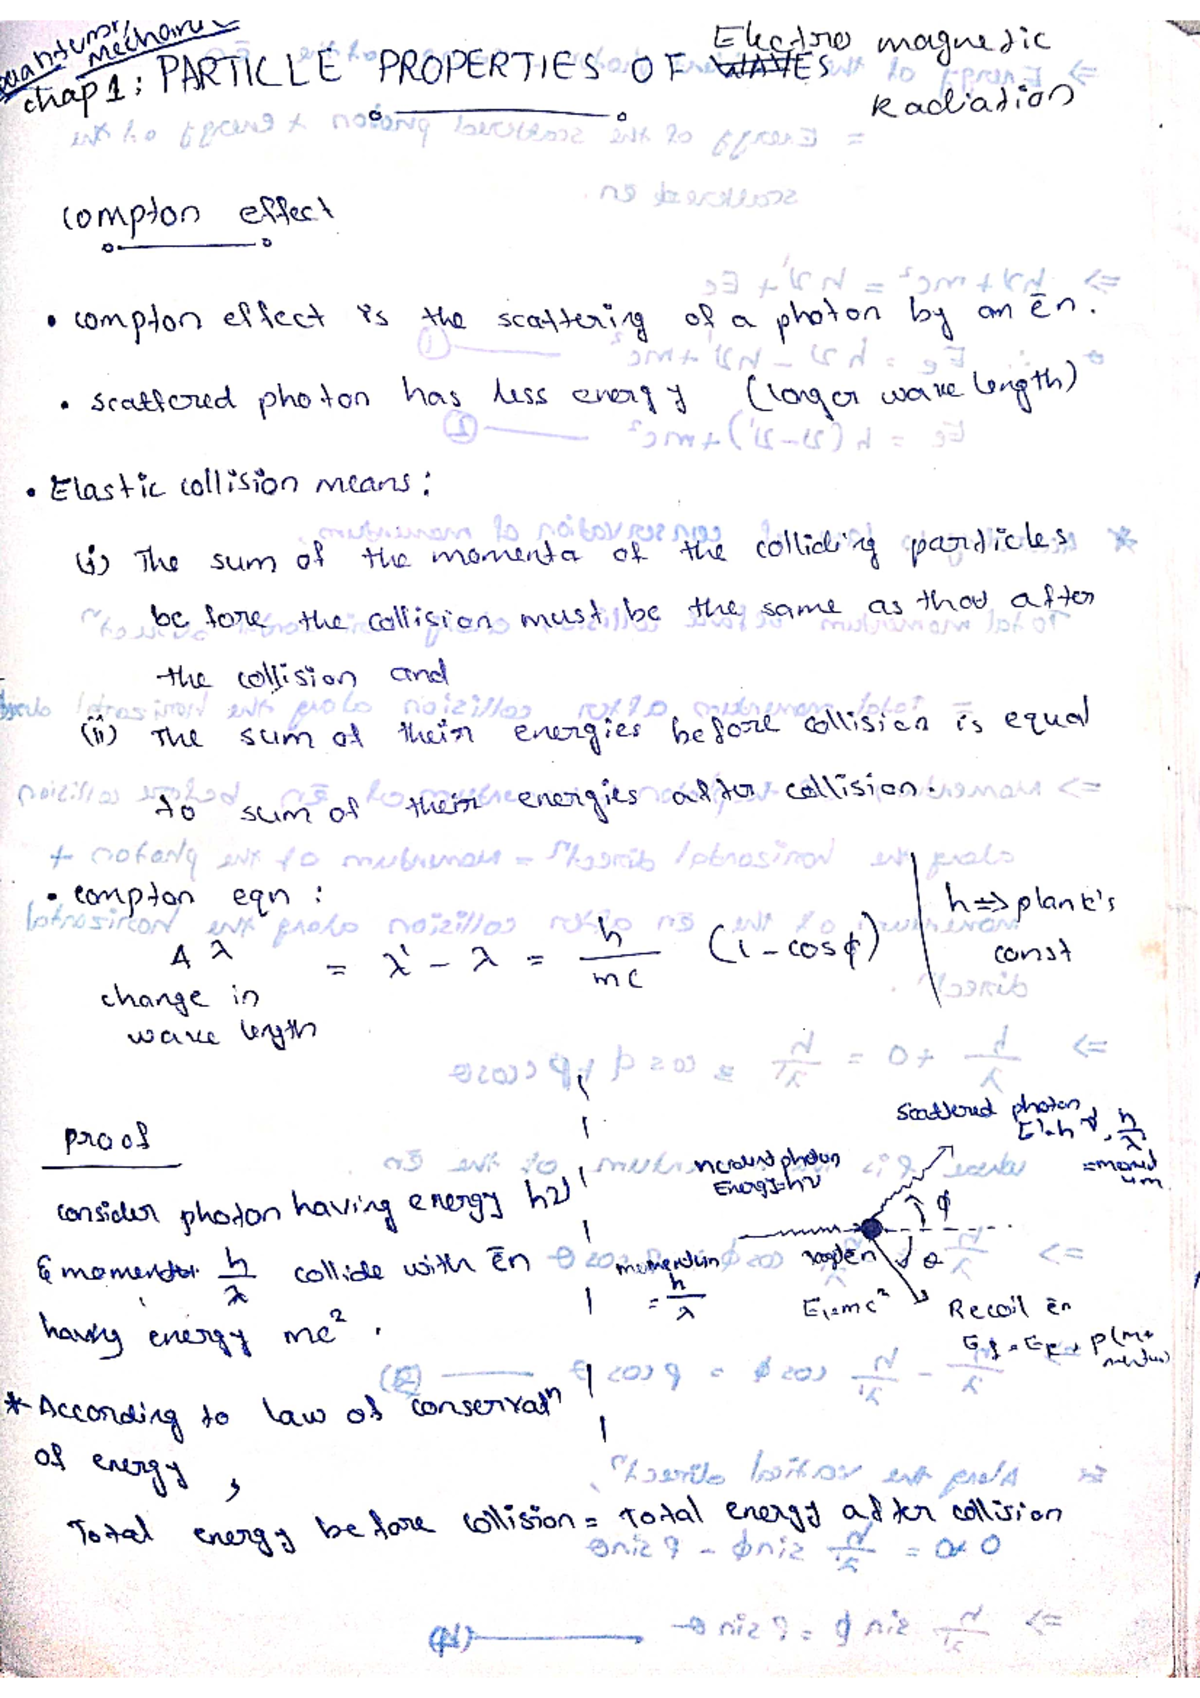 Quantum Mechanics
chap 1: PARTICLE PROPERTIES OF WAVES Electro magnetic Radiation
compton effect
• compton effect is the scattering of a photon by an ēn.
• scattered photon has less energy (longer wave length)
• Elastic collision means:
(i) The sum of the momenta of the colliding particles
before the collision must be the same as that after
the collision and
(ii) The sum of their energies before collision is equal
to sum of their energies after collision.
• compton eqn:
Δλ = λ' - λ = h/mc (1 - cosϕ) | h => plank's const
change in
wave length
Proof
consider photon having energy hν
& momentum h/λ collide with ēn
having energy mc².
Incident photon
Energy = hν
momentum
= h/λ
scattered photon
ϕ
θ
E₁ = mc²
Recoil ēn
* According to law of conservatⁿ
of energy,
Total energy before collision = Total energy after collision